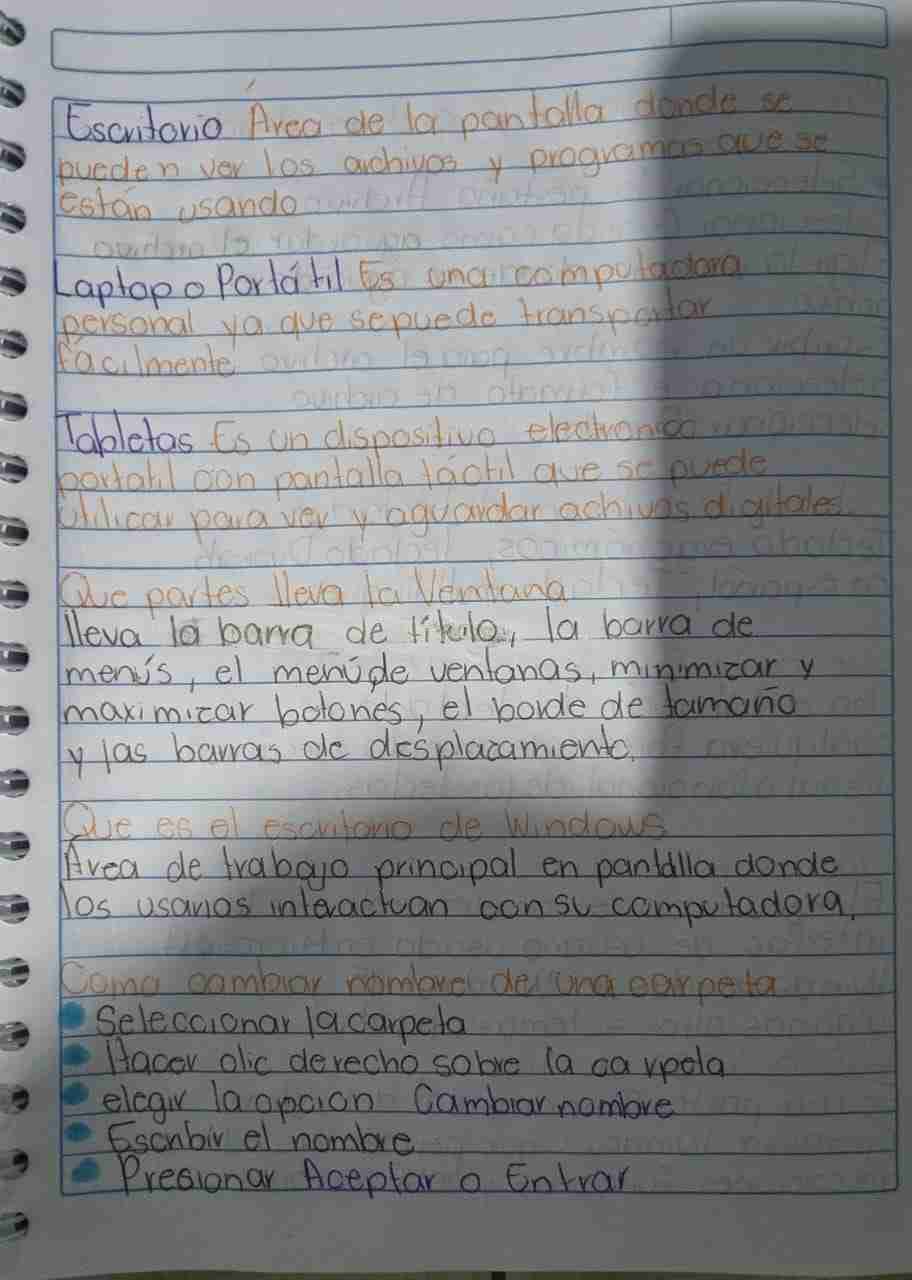 Escritorio Área de la pantalla donde se
pueden ver los archivos y programas que se
están usando
Laptop o Portátil Es una computadora
personal ya que se puede transportar
fácilmente
Tabletas Es un dispositivo electronico
portatil con pantalla táctil que se puede
utilicar para ver y aguardar achivos digitales.
Que partes lleva la Ventana
lleva la barra de título, la barra de
menús, el menú de ventanas, minimizar y
maximizar botones, el borde de tamaño
y las barras de desplazamiento.
Que es el escritorio de Windows
Área de trabajo principal en pantalla donde
los usarios interactuan con su computadora.
Como cambiar nombre de una carpeta
Seleccionar la carpeta
Hacer clic derecho sobre la carpeta
elegir la opcion Cambiar nombre
Escribir el nombre
Presionar Aceptar o Entrar